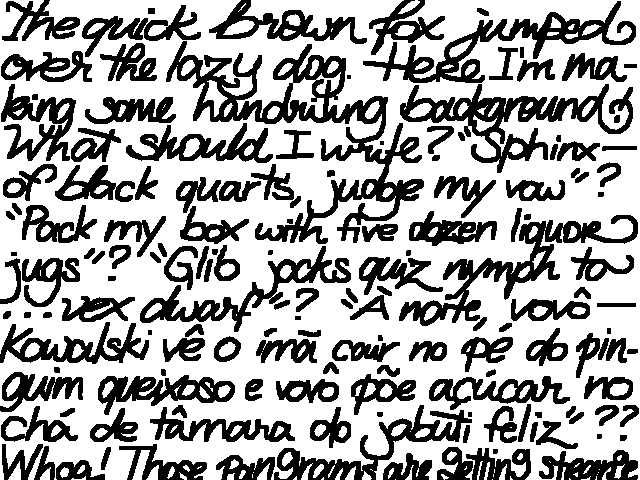 The quick brown fox jumped
over the lazy dog. Here I'm ma-
king some handriting background
What should I write? "Sphinx—
of black quarts, judge my vow"?
"Pack my box with five dozen liquor
jugs"? "Glib jocks quiz nymph to
...vex dwarf"? "À noite, vovô—
Kowalski vê o ímã cair no pé do pin-
guim queixoso e vovô põe açúcar no
chá de tâmara do jabuti feliz"??
Whoa! Those pangrams are getting strange